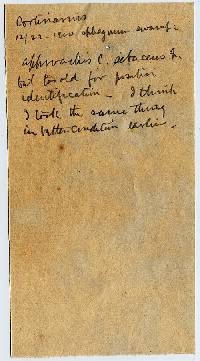 Cortinarius
12/22-1910 sphagnum swamp-
approaches C. setaceous
but too old for positive
identification - I think
I took the same thing
in better condition earlier -